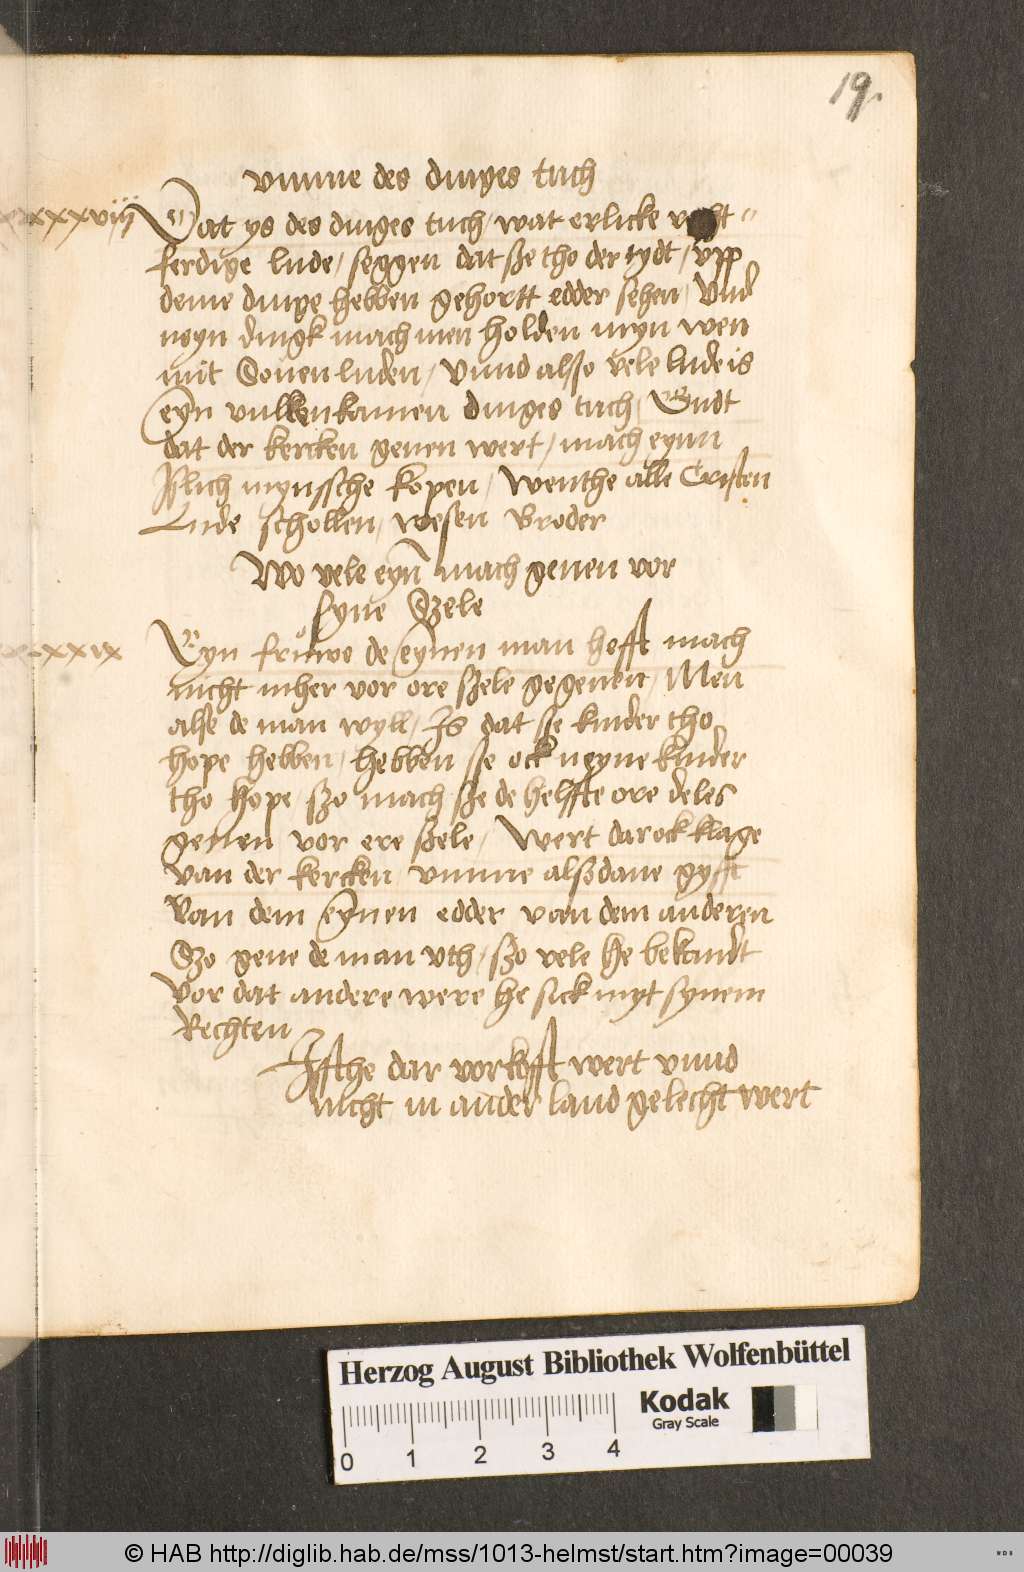 19.
vmme des dinges tuch
xxxviij Dat ys des dinges tuch / wat erlicke recht
ferdige lude / seggen dat sze tho der tydt / vpp
deme dinge hebben gehortt edder sehen / Vnd
neyn dingk mach men holden myn wen
mit Souen luden / Vnnd alsso vele lude is
eyn vulkenkamen dinges tuch / Vndt
dat der kercken geuen wert / mach eynn
Islich mynssche kopen / Wenthe alle Cristen
Lude schollen / wesen Broder
Wo vele eyn mach geuen vor
syne Szele
xxxix Eyn fruwe de eynen man hefft mach
nicht mher vor ore szele gegeuen / Men
alse de man wyll / Is dat sse kinder tho
hope hebben / hebben sse ock neyne kinder
tho hope / szo mach sze de helffte ore deles
geuen vor ere szele / Wert dar ock klage
van der kercken / vmme alszdane gyfft
Van dem eynen edder van dem anderen
Szo geue de man vth / szo vele he bekandt
Vor dat andere were he sick myt synem
Rechten
Iffthe dar vorkofft wert vnnd
nicht in ander land gelecht wert
Herzog August Bibliothek Wolfenbüttel
Kodak
Gray Scale
0 1 2 3 4
© HAB http://diglib.hab.de/mss/1013-helmst/start.htm?image=00039